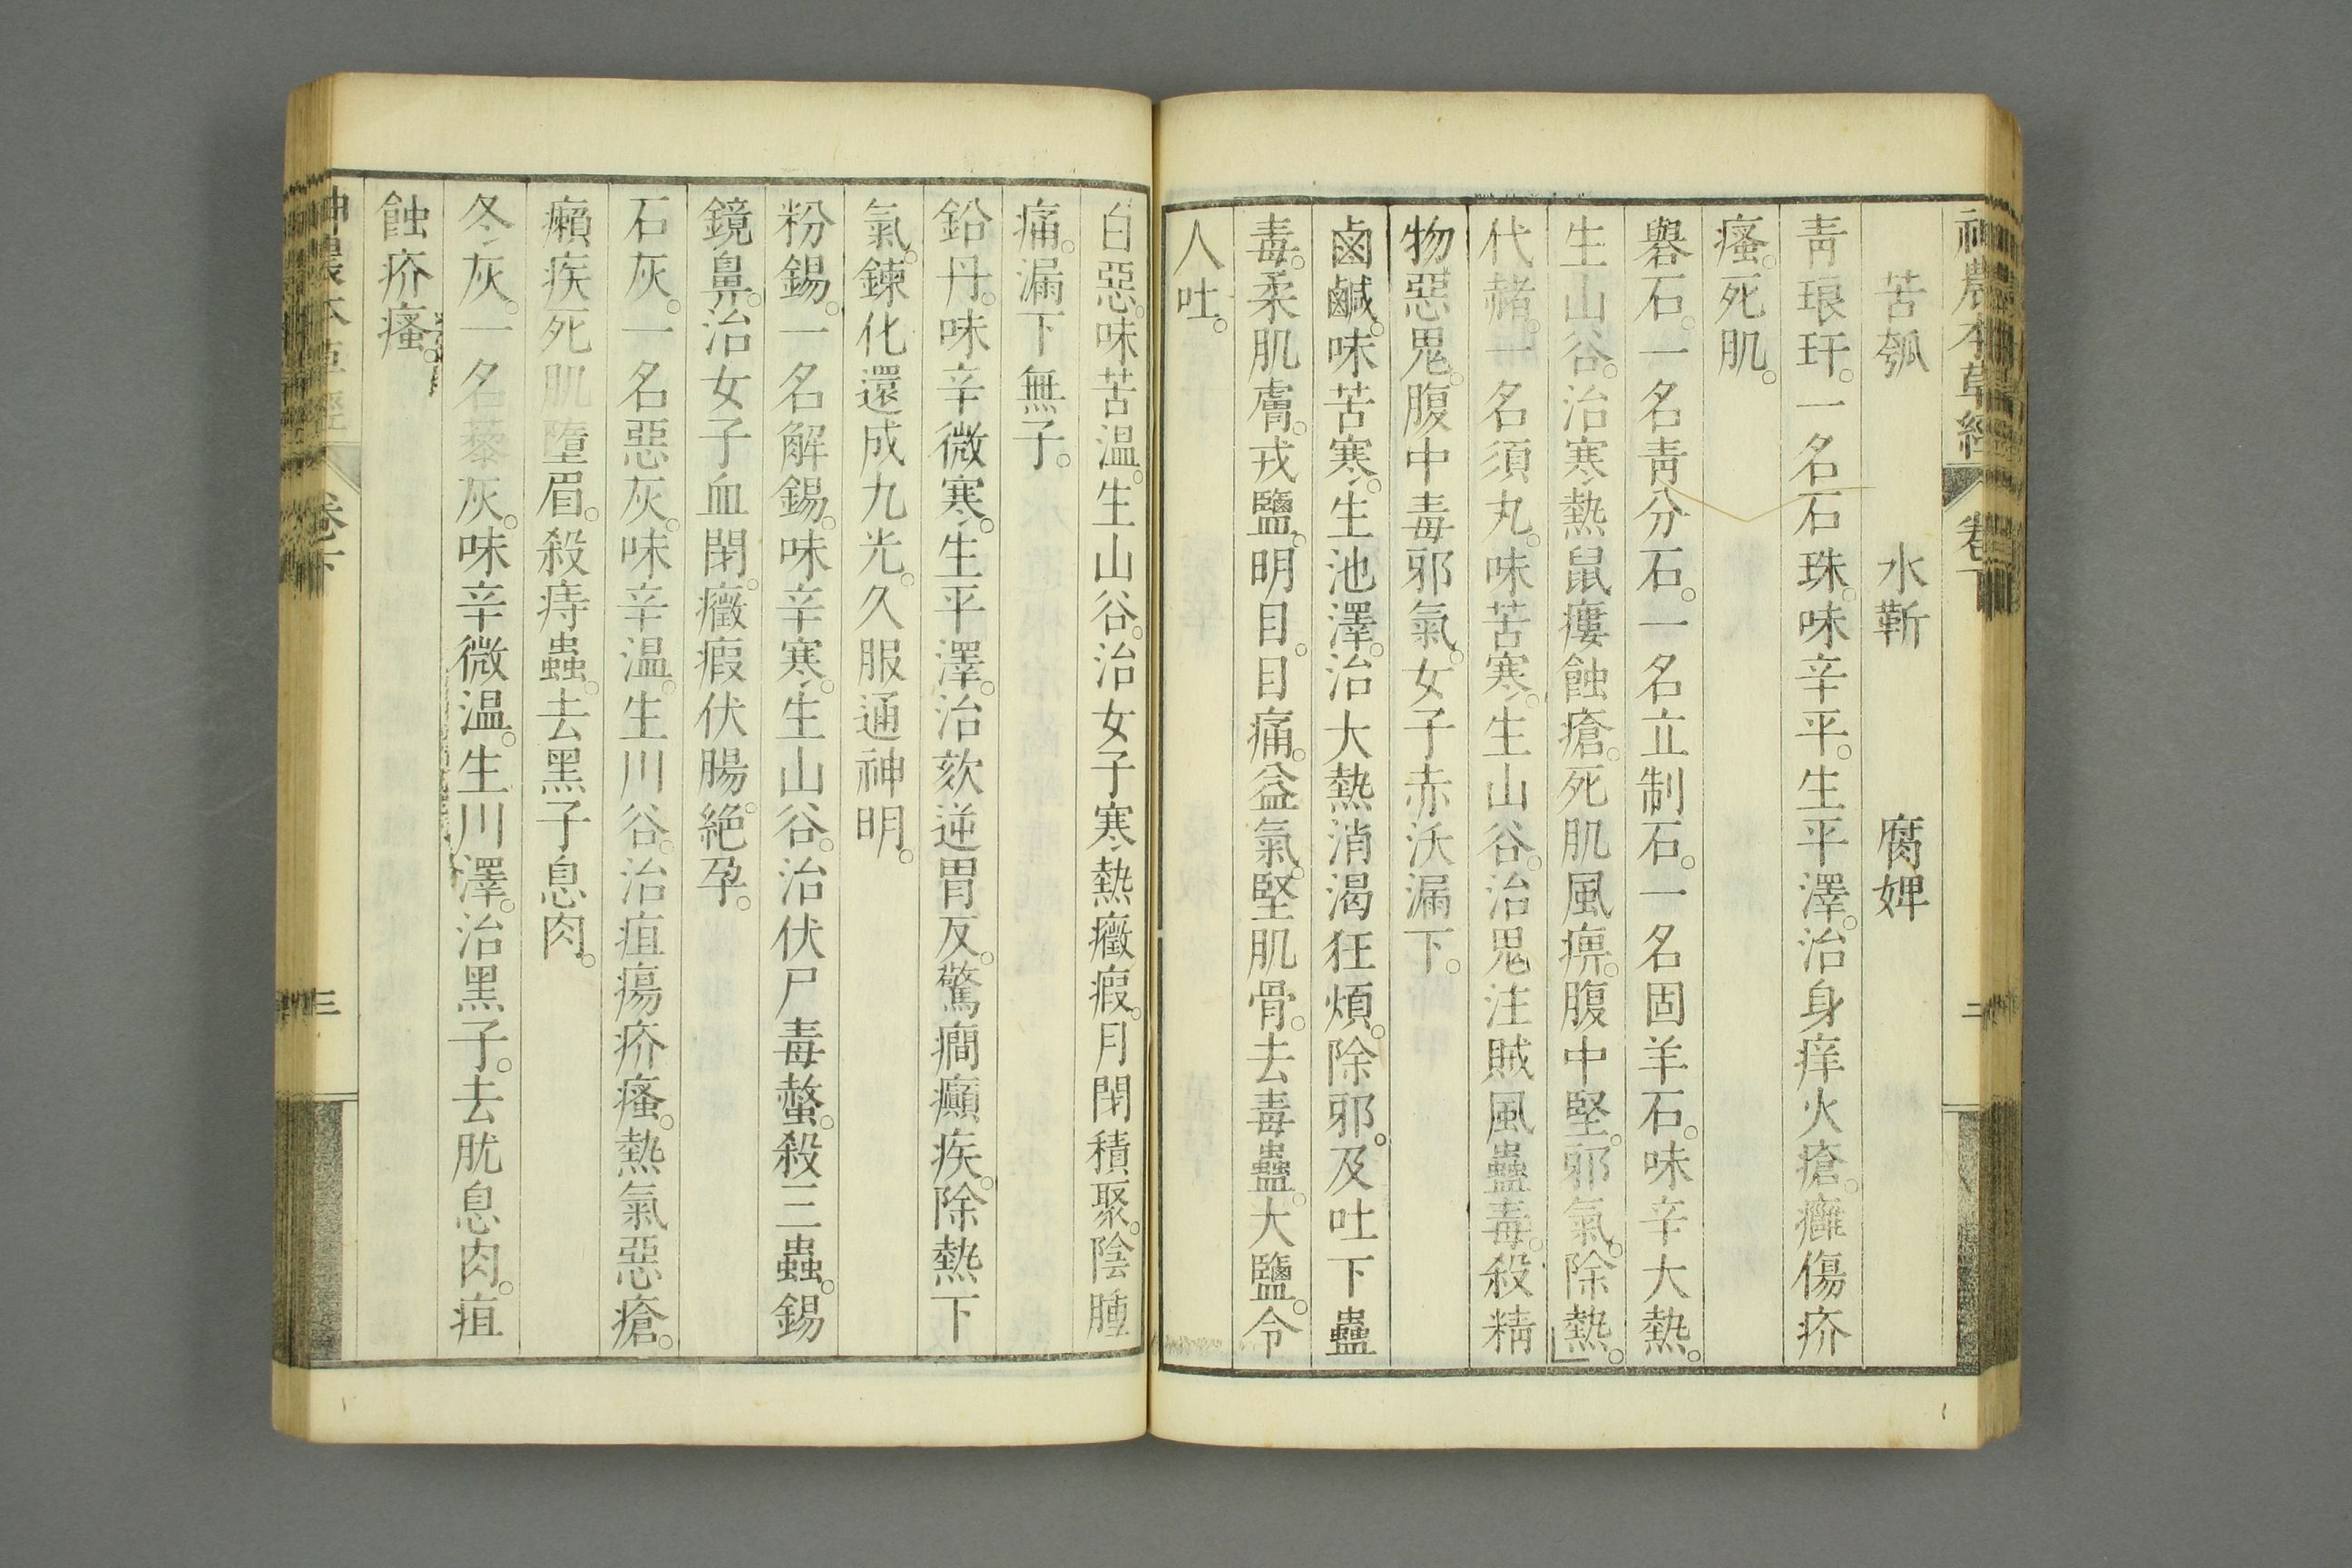 神農本草經 卷下 二
苦瓠 水靳 腐婢
靑琅玕。一名石珠。味辛平。生平澤。治身痒火瘡。癰傷疥
瘙。死肌。
礜石。一名靑分石。一名立制石。一名固羊石。味辛大熱。
生山谷。治寒熱鼠瘻蝕瘡。死肌風痹。腹中堅。邪氣。除熱。
代赭。一名須丸。味苦寒。生山谷。治鬼注賊風蠱毒。殺精
物惡鬼。腹中毒邪氣。女子赤沃漏下。
鹵鹹。味苦寒。生池澤。治大熱消渴狂煩。除邪。及吐下蠱
毒。柔肌膚。戎鹽。明目。目痛。益氣。堅肌骨。去毒蠱。大鹽。令
人吐。
白惡。味苦温。生山谷。治女子寒熱癥瘕。月閉積聚。陰腫
痛。漏下無子。
鉛丹。味辛微寒。生平澤。治欬逆胃反。驚癎癲疾。除熱下
氣。鍊化還成九光。久服通神明。
粉錫。一名解錫。味辛寒。生山谷。治伏尸毒螫。殺三蟲。錫
鏡鼻。治女子血閉。癥瘕伏腸。絕孕。
石灰。一名惡灰。味辛温。生川谷。治疽瘍疥瘙。熱氣惡瘡。
癩疾死肌墮眉。殺痔蟲。去黑子息肉。
冬灰。一名藜灰。味辛微温。生川澤。治黑子。去肬息肉。疽
蝕疥瘙。
神農本草經 卷下 三